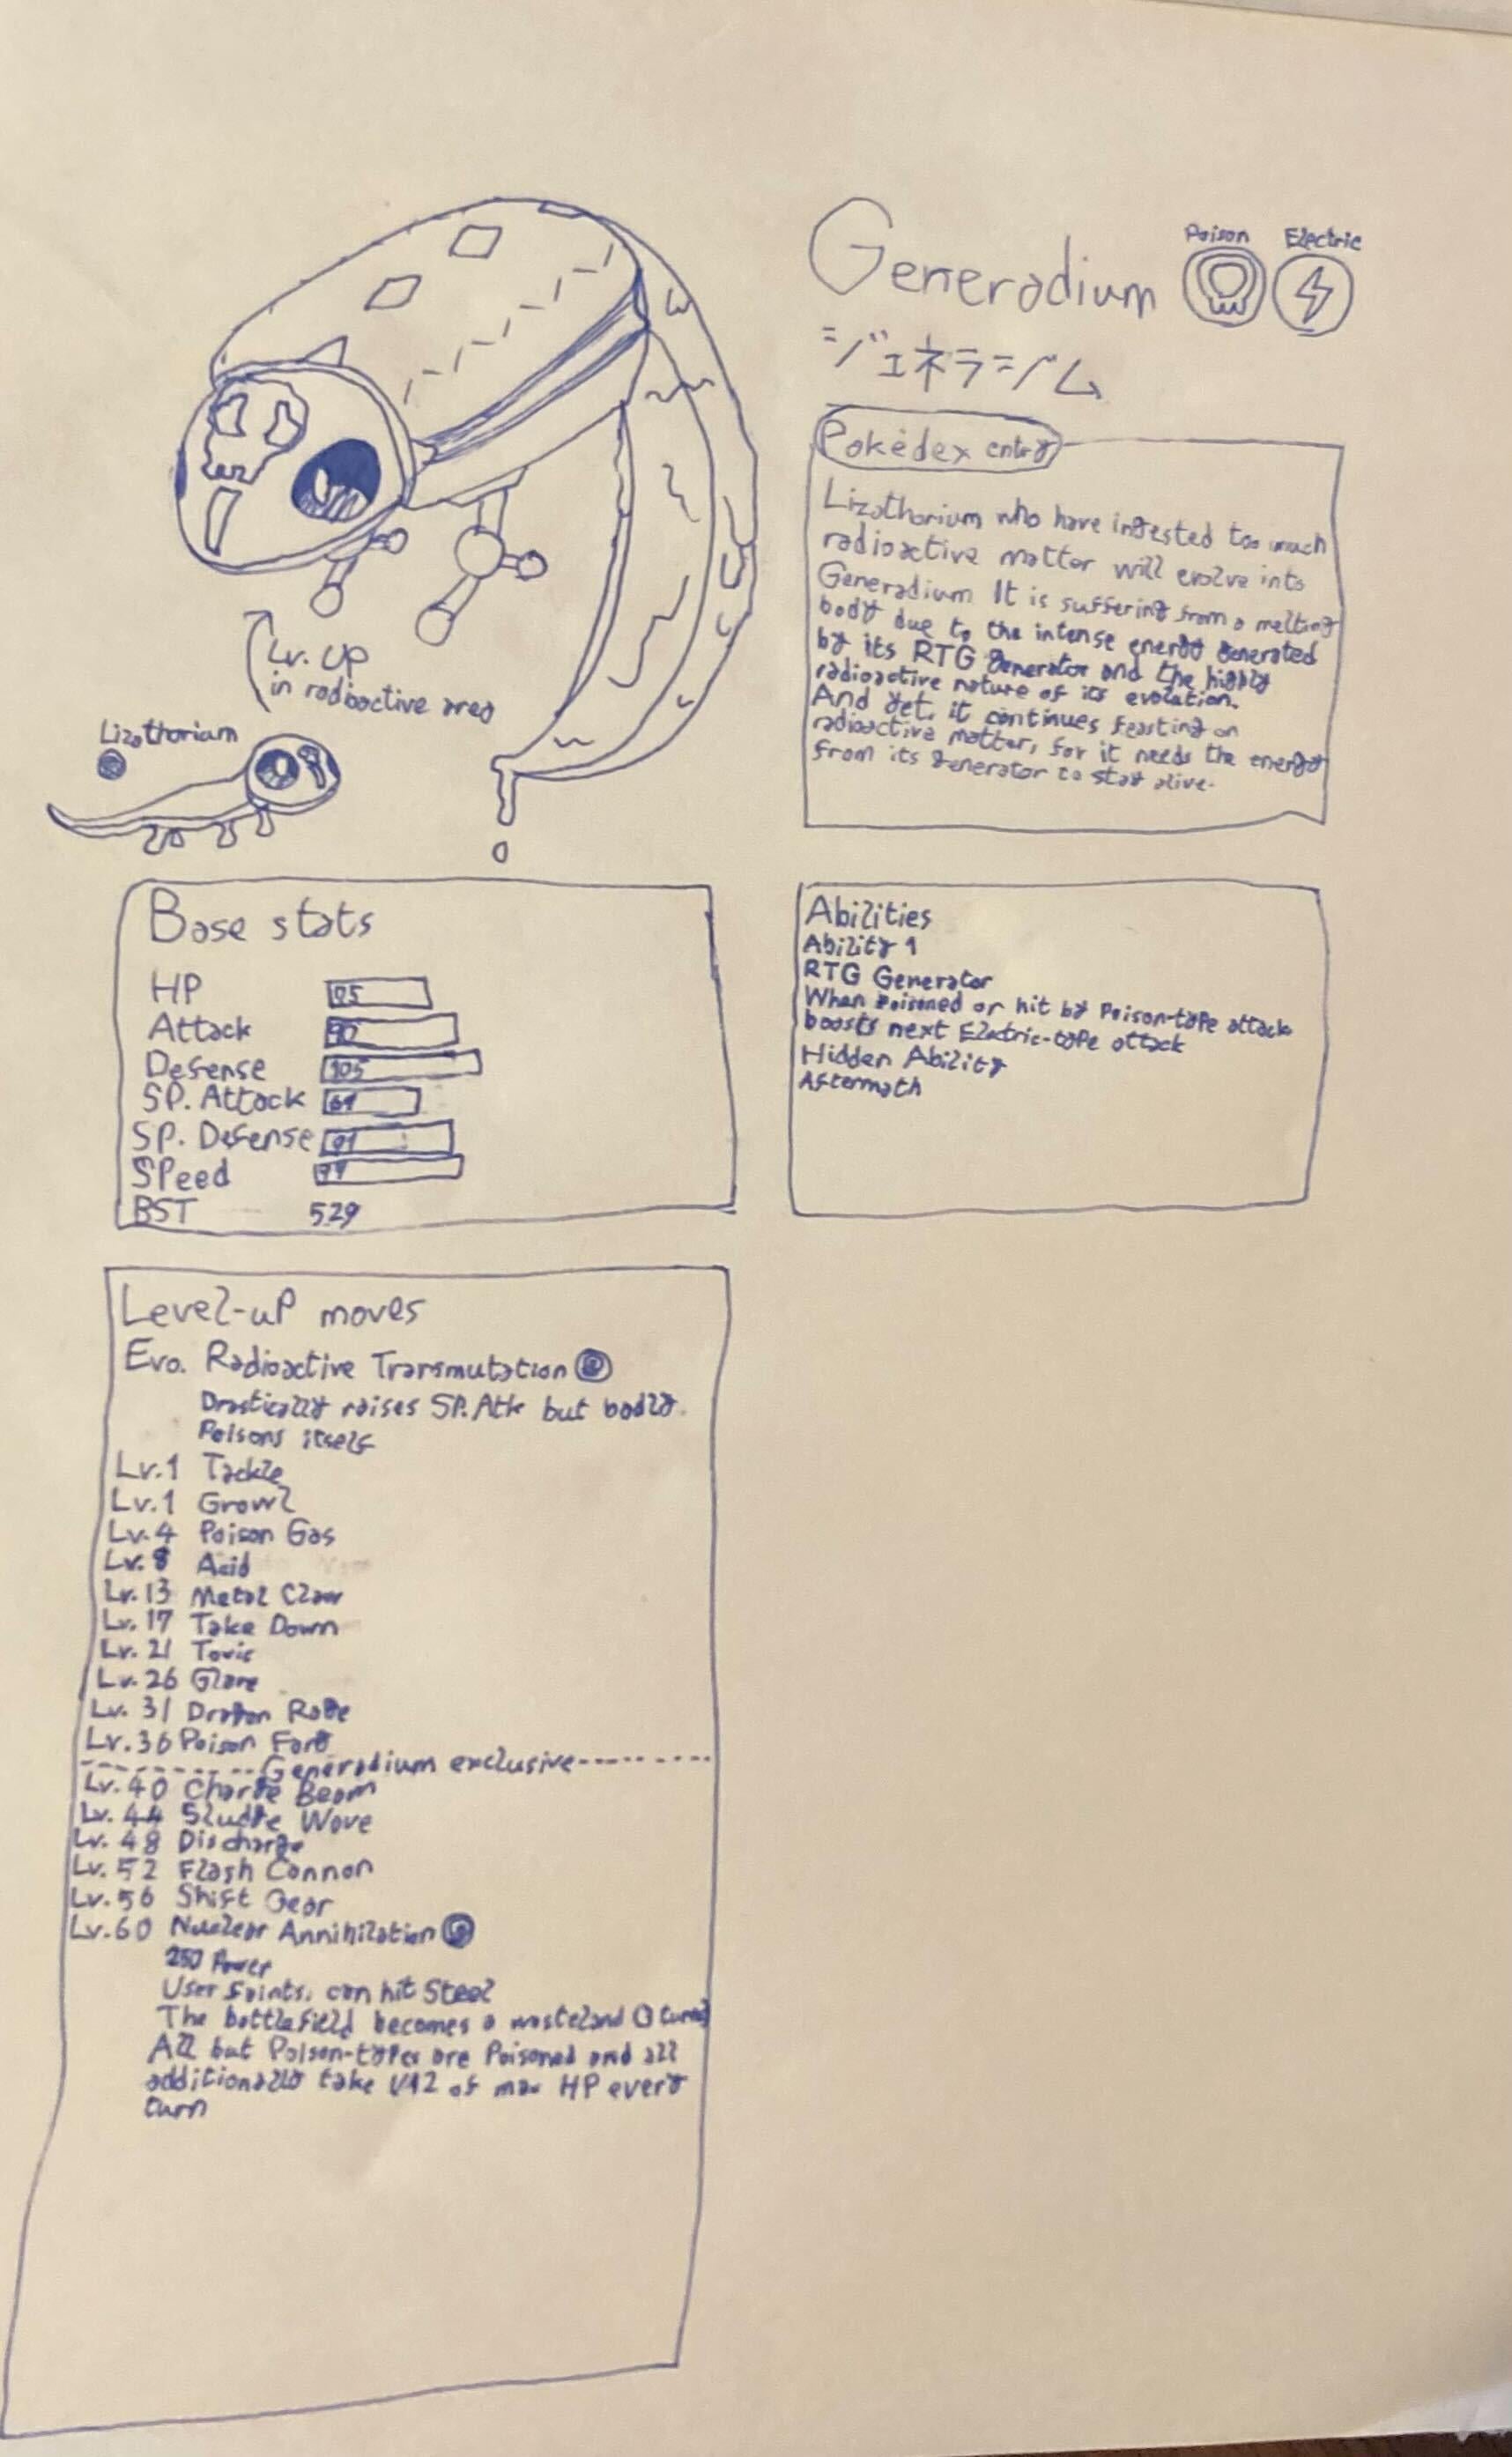 Generadium
Poison
Electric
ジェネラジム
Pokédex entry
Lizathorium who have ingested too much
radioactive matter will evolve into
Generadium. It is suffering from a melting
body due to the intense energy generated
by its RTG generator and the highly
radioactive nature of its evolution.
And yet, it continues feasting on
radioactive matter, for it needs the energy
from its generator to stay alive.
Lv. up
in radioactive area
Lizathorium
Base stats
HP
Attack
Defense 105
SP. Attack
SP. Defense
Speed
BST 529
Abilities
Ability 1
RTG Generator
When poisoned or hit by Poison-type attack
boosts next Electric-type attack
Hidden Ability
Aftermath
Level-up moves
Evo. Radioactive Transmutation
Drastically raises SP. Atk but badly
Poisons itself
Lv.1 Tackle
Lv.1 Growl
Lv.4 Poison Gas
Lv.8 Acid
Lv.13 Metal Claw
Lv.17 Take Down
Lv.21 Toxic
Lv.26 Glare
Lv.31 Dragon Rage
Lv.36 Poison Fang
Generadium exclusive
Lv.40 Charge Beam
Lv.44 Sludge Wave
Lv.48 Discharge
Lv.52 Flash Cannon
Lv.56 Shift Gear
Lv.60 Nuclear Annihilation
250 Power
User faints, can hit Steel
The battlefield becomes a wasteland
All but Poison-types are Poisoned and all
additionally take 1/12 of max HP every
turn